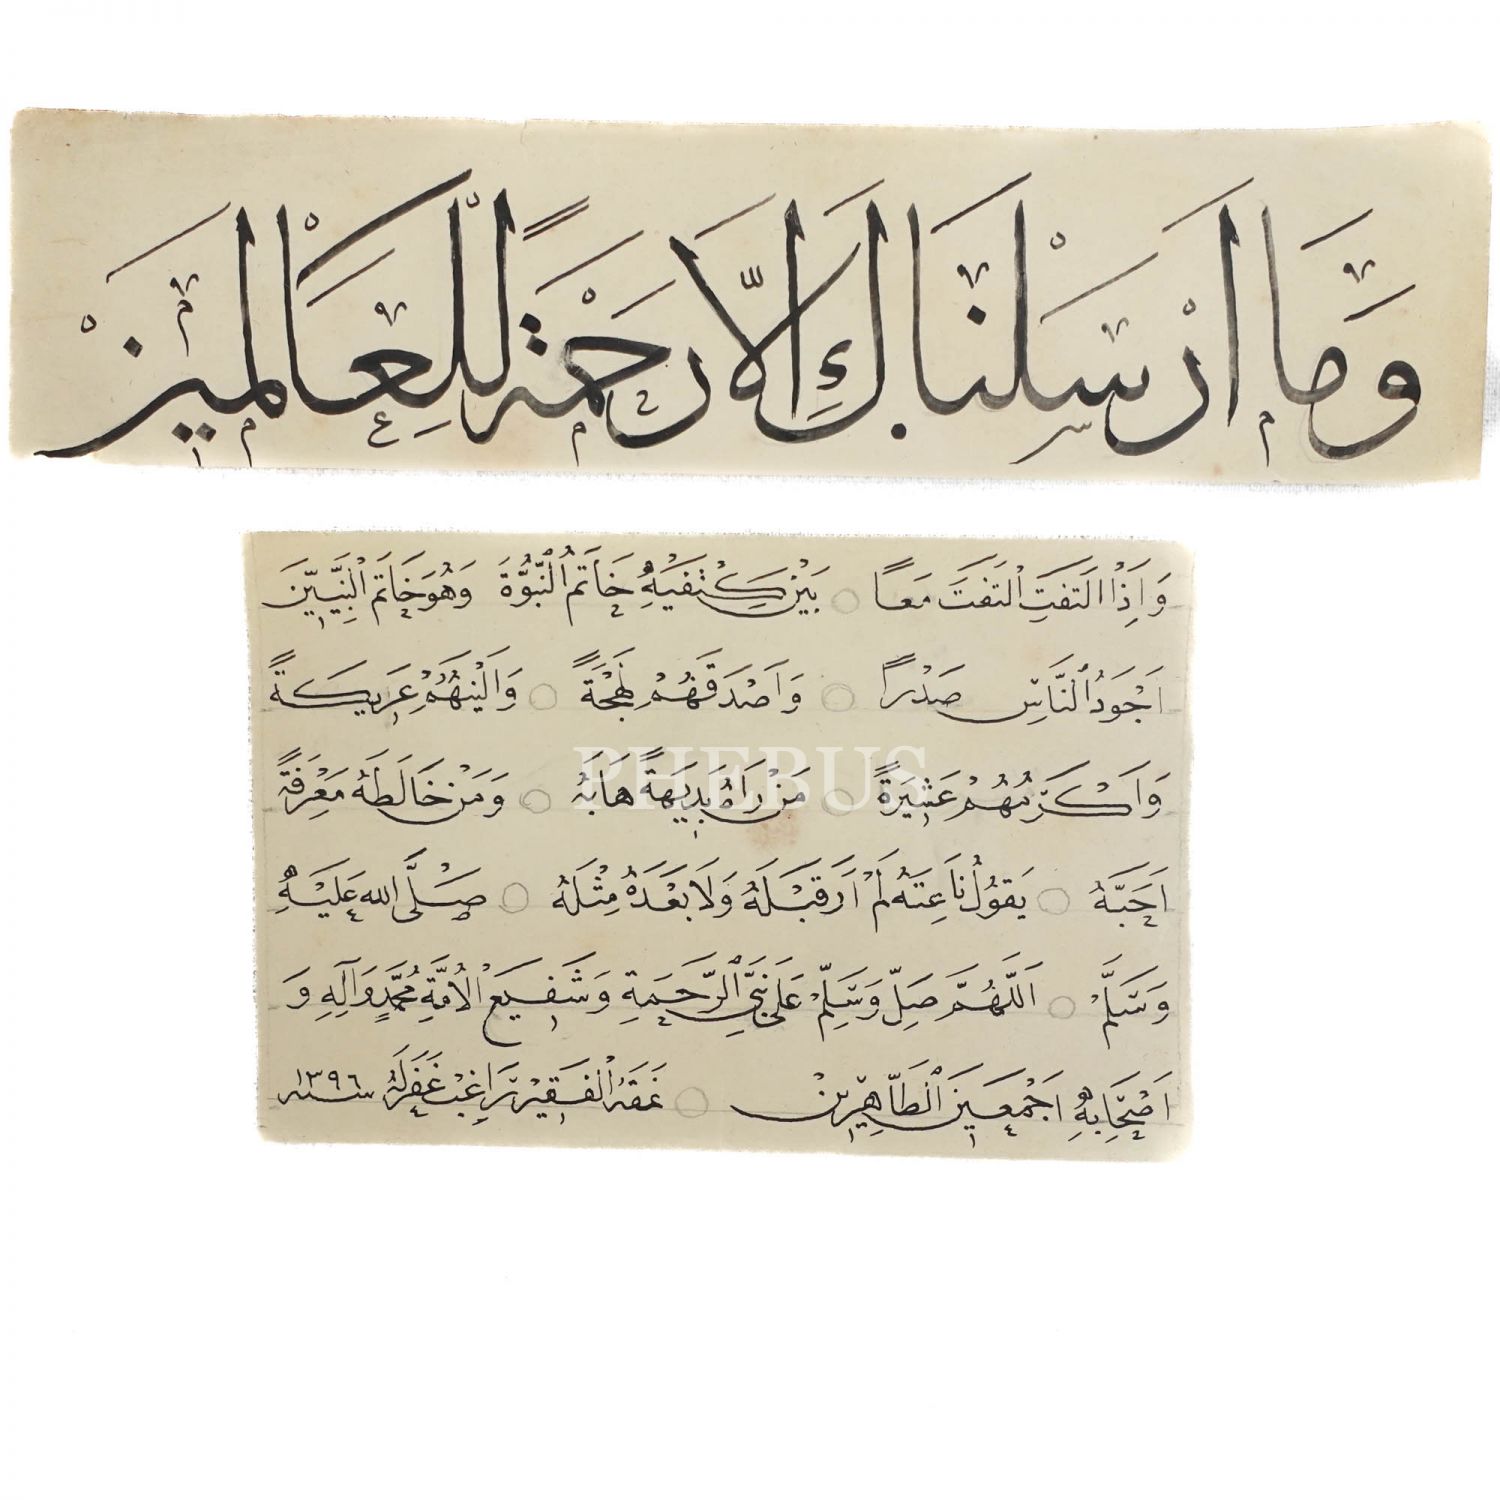 وَمَا اَرْسَلْنَاكَ اِلَّا رَحْمَةً لِلْعَالَمِينَ
وَاِذَا الْتَفَتَ الْتَفَتَ مَعًا بَيْنَ كَتِفَيْهِ خَاتَمُ النُّبُوَّةِ وَهُوَ خَاتَمُ النَّبِيِّينَ
اَجْوَدُ النَّاسِ صَدْرًا وَاَصْدَقُهُمْ لَهْجَةً وَاَلْيَنُهُمْ عَرِيكَةً
وَاَكْرَمُهُمْ عَشِيرَةً مَنْ رَاٰهُ بَدِيهَةً هَابَهُ وَمَنْ خَالَطَهُ مَعْرِفَةً
PHEBUS
اَحَبَّهُ يَقُولُ نَاعِتُهُ لَمْ اَرَ قَبْلَهُ وَلَا بَعْدَهُ مِثْلَهُ صَلَّى اللهُ عَلَيْهِ
وَسَلَّمَ اَللّٰهُمَّ صَلِّ وَسَلِّمْ عَلَى نَبِيِّ الرَّحْمَةِ وَشَفِيعِ الْاُمَّةِ مُحَمَّدٍ وَآلِهِ وَ
اَصْحَابِهِ اَجْمَعِينَ الطَّاهِرِينَ نَمَقَهُ الْفَقِيرُ رَاغِبْ غُفِرَ لَهُ سنه ١٣٩٦